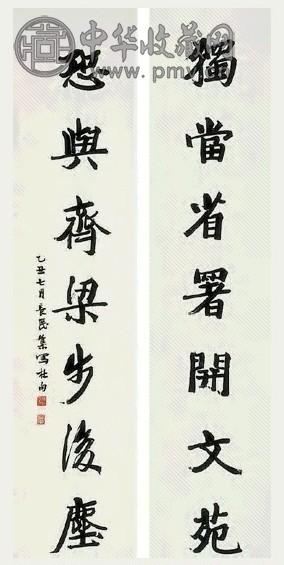 中华收藏网
www.pm
獨當省署開文苑
恐與齊梁步後塵
乙丑七月長民集寫杜句